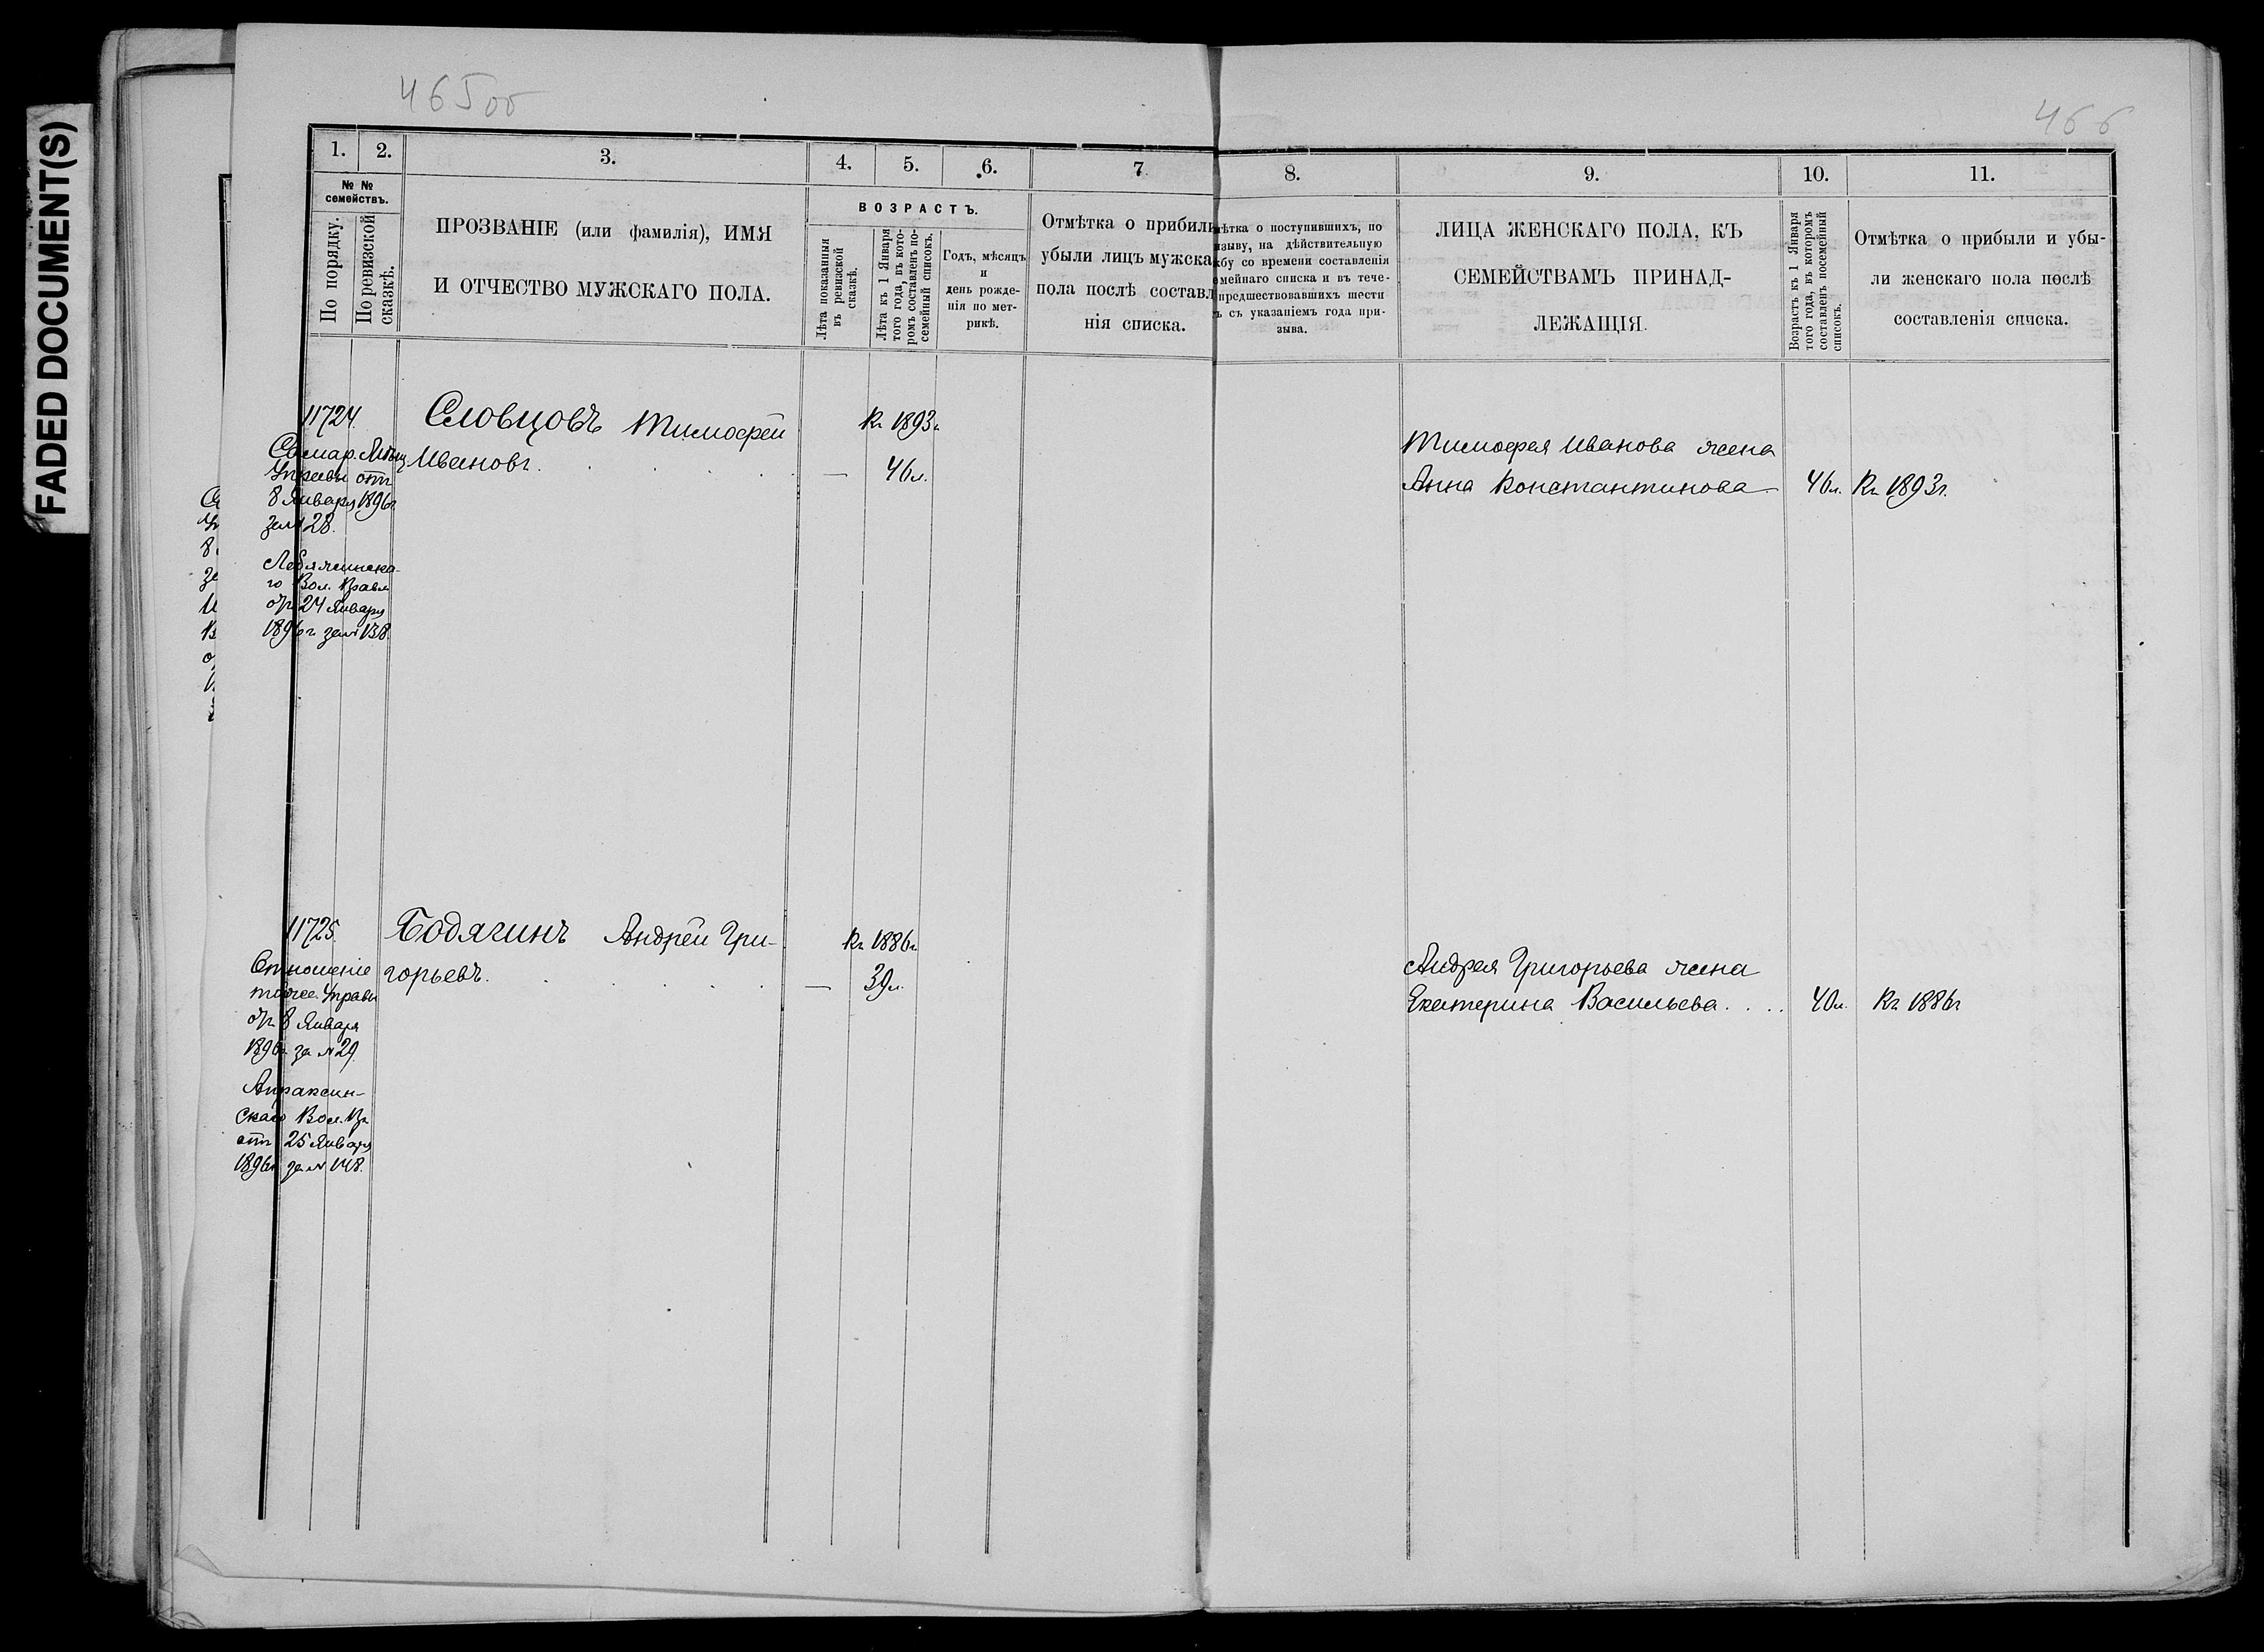 FADED DOCUMENT(S)
465об
466
1.
2.
3.
4.
5.
6.
7
8.
9.
10.
11.
№ №
семействъ.
По порядку.
По ревизской
сказкѣ.
ПРОЗВАНІЕ (или фамилія), ИМЯ
И ОТЧЕСТВО МУЖСКАГО ПОЛА.
ВОЗРАСТЪ.
Лѣта показанныя
въ ревизской
сказкѣ.
Лѣта къ 1 Января
того года, въ кото-
ромъ составленъ по-
семейный списокъ.
Годъ, мѣсяцъ
и
день рожде-
нія по мет-
рикѣ.
Отмѣтка о прибыли
убыли лицъ мужска
пола послѣ составл
нія списка.
мѣтка о поступившихъ, по
изыву, на дѣйствительную
жбу со времени составленія
мейнаго списка и въ тече-
предшествовавшихъ шести
ъ съ указаніемъ года при-
зыва.
ЛИЦА ЖЕНСКАГО ПОЛА, КЪ
СЕМЕЙСТВАМЪ ПРИНАД-
ЛЕЖАЩІЯ.
Возрастъ къ 1 Января
того года, въ которомъ
составленъ посемейный
списокъ.
Отмѣтка о прибыли и убы-
ли женскаго пола послѣ
составленія списка.
11724.
Самар. Мѣщ.
Управы отъ
8 Января 1896г
за № 28.
Лебяжинска-
го Вол. Правл
отъ 24 Января
1896г за № 138.
Словцовъ Тимофей
Ивановъ.
Къ 1893г
— 46л.
Тимофея Иванова жена
Анна Константинова
46л. Къ 1893г.
11725.
Отношеніе
тойже Управы
отъ 8 Января
1896г. за № 29
Апраксин-
скаго Вол. Пр
отъ 25 Января
1896г за № 148.
Бодягинъ Андрей Гри-
горьевъ.
Къ 1886г
— 39л.
Андрея Григорьева жена
Екатерина Васильева. . . .
40л. Къ 1886г